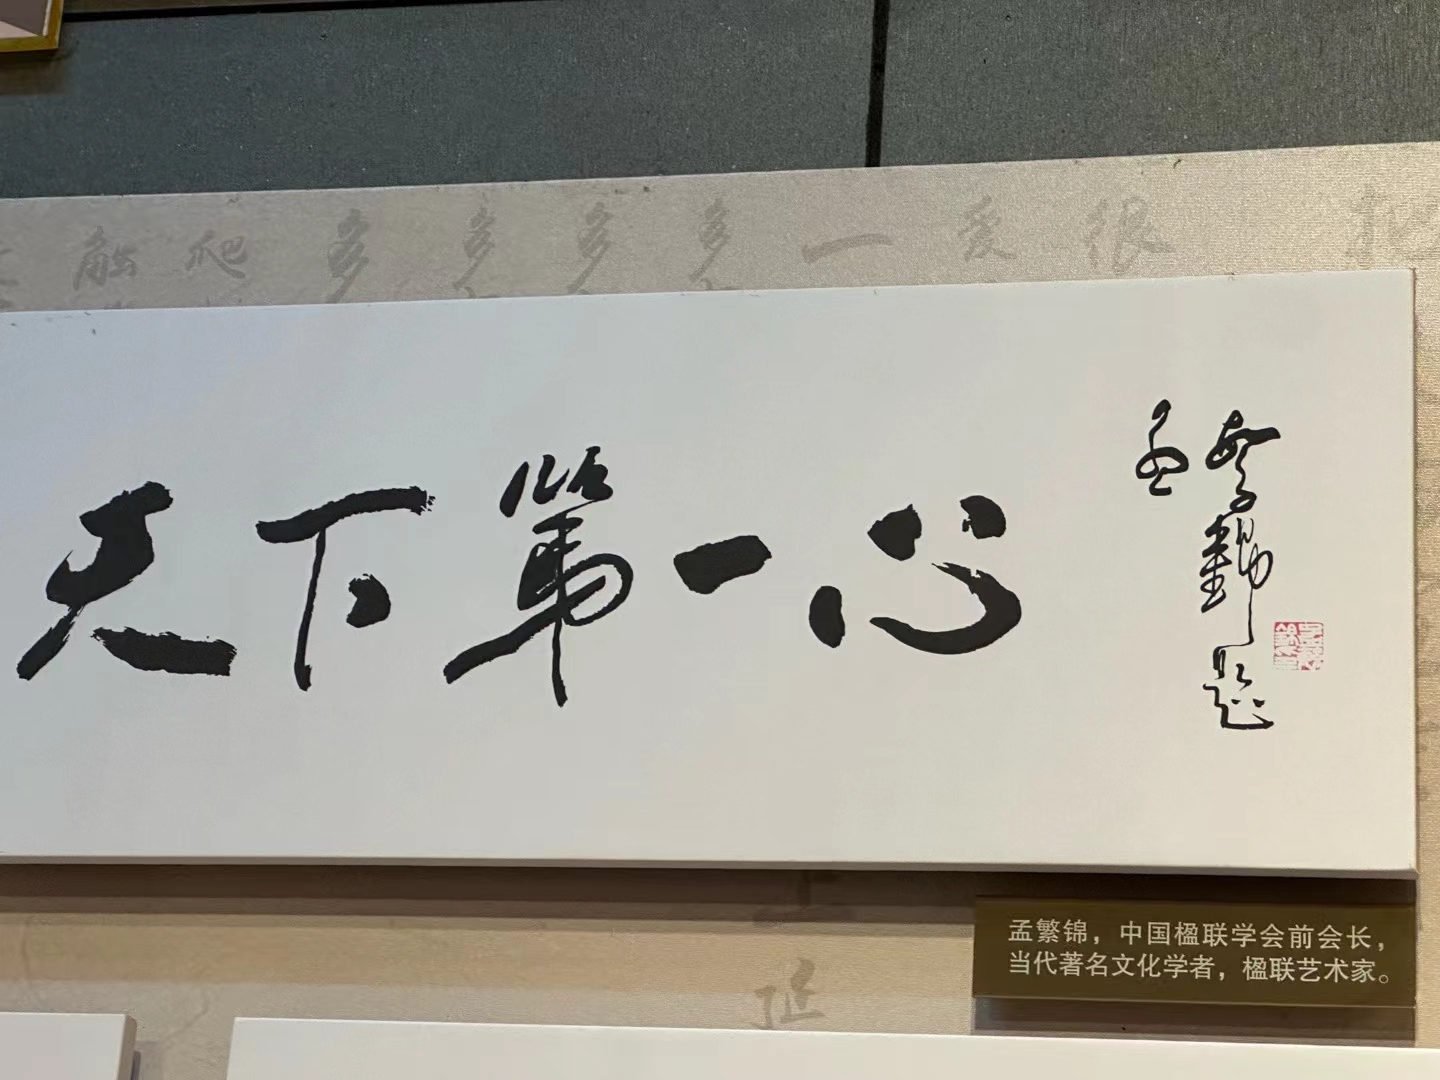 触 爬 多 多 多 多 一 爱 很
天下第一心
孟繁錦题
孟繁锦，中国楹联学会前会长，
当代著名文化学者，楹联艺术家。